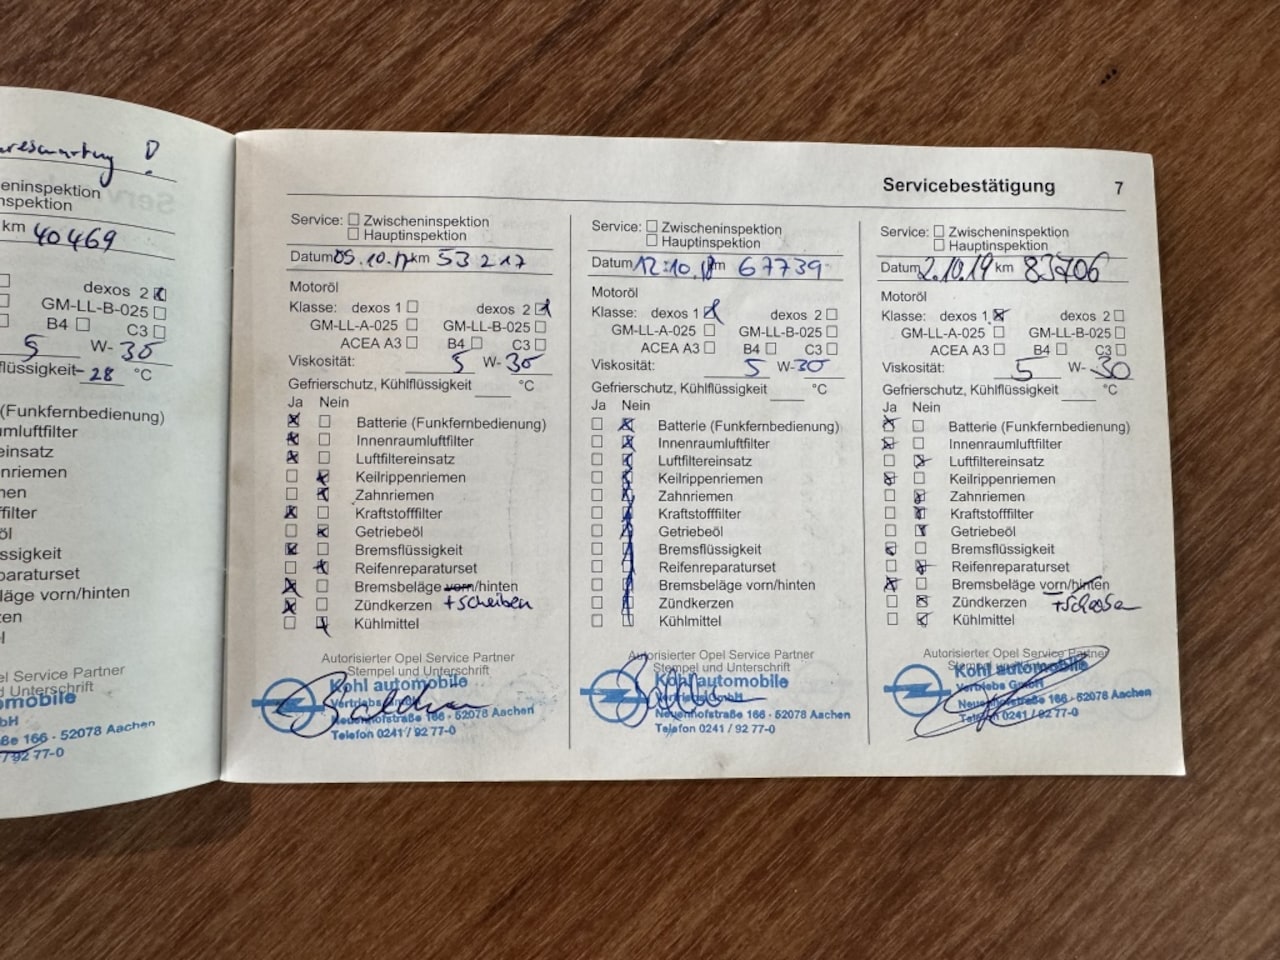 !
eninspektion
nspektion
km 40469
dexos 2
GM-LL-B-025
B4 C3
5 W-30
flüssigkeit -28 °C
(Funkfernbedienung)
umluftfilter
einsatz
nriemen
men
filter
öl
ssigkeit
paraturset
läge vorn/hinten
zen
el
pel Service Partner
d Unterschrift
omobile
bH
ße 166 · 52078 Aachen
/ 92 77-0
Servicebestätigung 7
Service: Zwischeninspektion
Hauptinspektion
Datum 05.10.17 km 53217
Motoröl
Klasse: dexos 1 dexos 2
GM-LL-A-025 GM-LL-B-025
ACEA A3 B4 C3
Viskosität: 5 W-30
Gefrierschutz, Kühlflüssigkeit °C
Ja Nein
Batterie (Funkfernbedienung)
Innenraumluftfilter
Luftfiltereinsatz
Keilrippenriemen
Zahnriemen
Kraftstofffilter
Getriebeöl
Bremsflüssigkeit
Reifenreparaturset
Bremsbeläge vorn/hinten
Zündkerzen +Scheiben
Kühlmittel
Autorisierter Opel Service Partner
Stempel und Unterschrift
Kohl automobile
Vertriebs GmbH
Neuenhofstraße 166 · 52078 Aachen
Telefon 0241 / 92 77-0
Service: Zwischeninspektion
Hauptinspektion
Datum 12.10.18 km 67739
Motoröl
Klasse: dexos 1 dexos 2
GM-LL-A-025 GM-LL-B-025
ACEA A3 B4 C3
Viskosität: 5 W-30
Gefrierschutz, Kühlflüssigkeit °C
Ja Nein
Batterie (Funkfernbedienung)
Innenraumluftfilter
Luftfiltereinsatz
Keilrippenriemen
Zahnriemen
Kraftstofffilter
Getriebeöl
Bremsflüssigkeit
Reifenreparaturset
Bremsbeläge vorn/hinten
Zündkerzen
Kühlmittel
Autorisierter Opel Service Partner
Stempel und Unterschrift
Kohl automobile
Vertriebs GmbH
Neuenhofstraße 166 · 52078 Aachen
Telefon 0241 / 92 77-0
Service: Zwischeninspektion
Hauptinspektion
Datum 2.10.19 km 83706
Motoröl
Klasse: dexos 1 dexos 2
GM-LL-A-025 GM-LL-B-025
ACEA A3 B4 C3
Viskosität: 5 W-30
Gefrierschutz, Kühlflüssigkeit °C
Ja Nein
Batterie (Funkfernbedienung)
Innenraumluftfilter
Luftfiltereinsatz
Keilrippenriemen
Zahnriemen
Kraftstofffilter
Getriebeöl
Bremsflüssigkeit
Reifenreparaturset
Bremsbeläge vorn/hinten
Zündkerzen
Kühlmittel
Autorisierter Opel Service Partner
Stempel und Unterschrift
Kohl automobile
Vertriebs GmbH
Neuenhofstraße 166 · 52078 Aachen
Telefon 0241 / 92 77-0